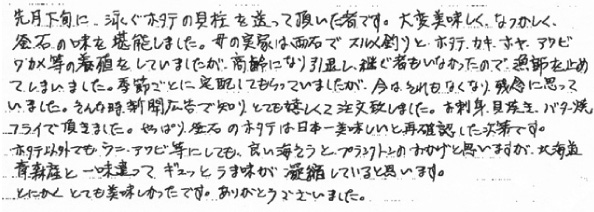 先月下旬に、泳ぐホタテの貝柱を送って頂いた者です。大変美味しく、なつかしく、
釜石の味を堪能しました。母の実家は両石で スルメ釣りと ホタテ、カキ、ホヤ、アワビ
ワカメ等の養殖をしていましたが、高齢になり引退し、継ぐ者もいなかったので、漁師を止め
てしまいました。季節ごとに宅配してもらっていましたが、今はそれもなくなり残念に思って
いました。そんな時、新聞広告で知り、とても嬉しくて注文致しました。お刺身、貝焼き、バター焼、
フライで頂きました。やっぱり釜石のホタテは日本一美味しいと再確認した次第です。
ホタテ以外でも、ウニ、アワビ等にしても、良い海そうと、プランクトンのおかげと思いますが、北海道
青森産と一味違って、ギュッとうま味が凝縮していると思います。
とにかく、とても美味しかったです。ありがとうございました。